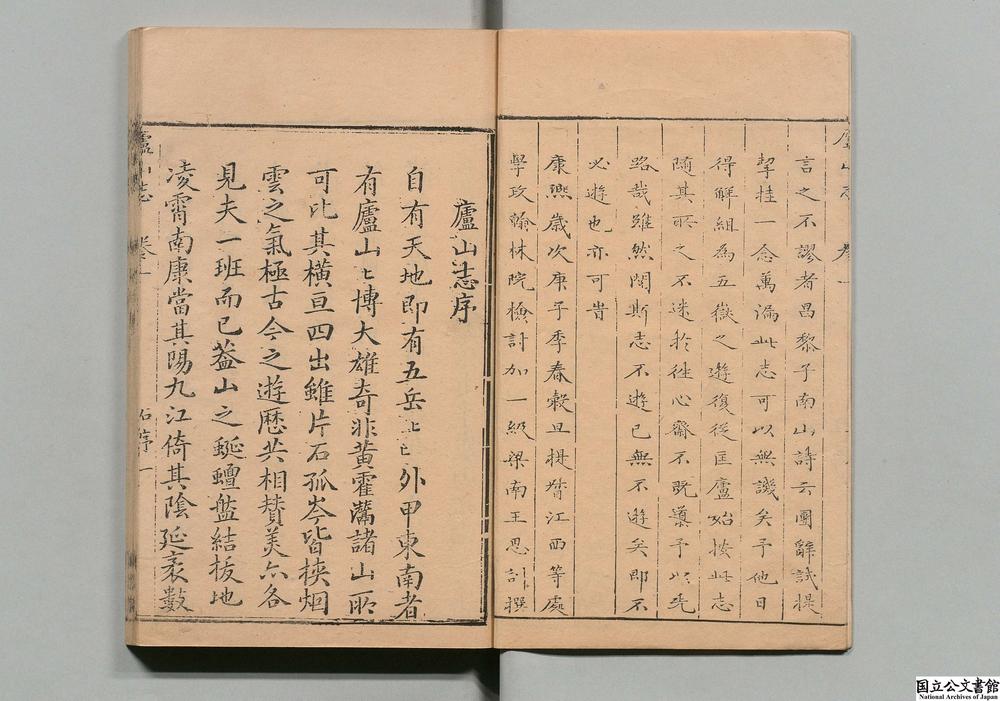 言之不謬者昌黎子南山詩云團辭試提
挈挂一念萬漏此志可以無譏矣予他日
得解組為五嶽之遊復從匡廬始按此志
隨其所之不迷於徃心齋不既導予以先
路哉雖然閱斯志不遊已無不遊矣即不
必遊也亦可昔
康熙歲次庚子季春榖旦提督江西等處
學政翰林院檢討加一級梁南王思訓撰
廬山志序
自有天地即有五岳上亡外甲東南者
有廬山匕博大雄奇非黃霍灊諸山所
可比其橫亘四出雖片石孤岑皆挾烟
雲之氣極古今之遊歷共相賛美亦各
見夫一班而已葢山之蜒蟺盤結拔地
凌霄南康當其陽九江倚其陰延袤數
廬山志 卷一 石序一
国立公文書館
National Archives of Japan